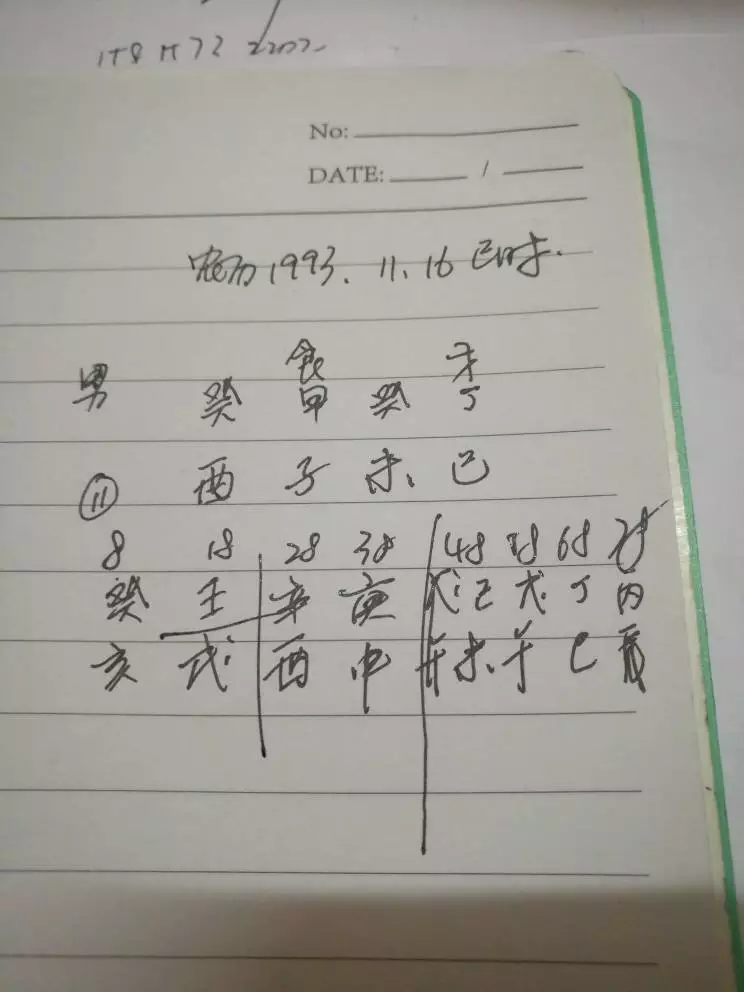 No:
DATE: /
农历1993. 11. 16 巳时.
食 才
男 癸 甲 癸 丁
⑪ 酉 子 未 巳
8 18 28 38 48 58 68 78
癸 壬 辛 庚 己 戊 丁 丙
亥 戌 酉 申 未 午 巳